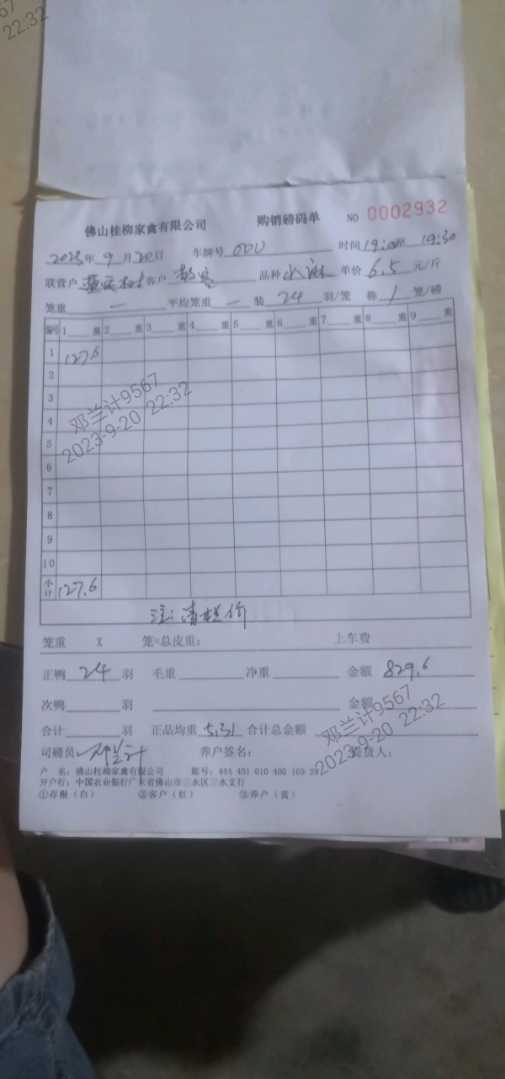 22:32
佛山桂柳家禽有限公司 购销磅码单 NO 0002932
2023年9月20日 车牌号 时间 19:00 19:30
联营户 客户 品种 水麻 单价 6.5 元/斤
笼重 一 平均笼重 一 装 24 羽/笼 称 1 笼/磅
编号 1 重 2 重 3 重 4 重 5 重 6 重 7 重 8 重 9 重
1 127.6
2
3
4
邓兰计9567
2023-9-20 22:32
5
6
7
8
9
10
小计 127.6
注: 清栏价
笼重 X 笼=总皮重: 上车费
正鸭 24 羽 毛重 净重 金额 829.6
次鸭 羽 金额
邓兰计9567
2023-9-20 22:32
合计 羽 正品均重 5.31 合计总金额
司磅员 邓兰计 养户签名:
户 名: 佛山桂柳家禽有限公司 账号:
开户行: 中国农业银行广东省佛山市三水区三水支行
①存根(白) ②客户(红) ③养户(黄)